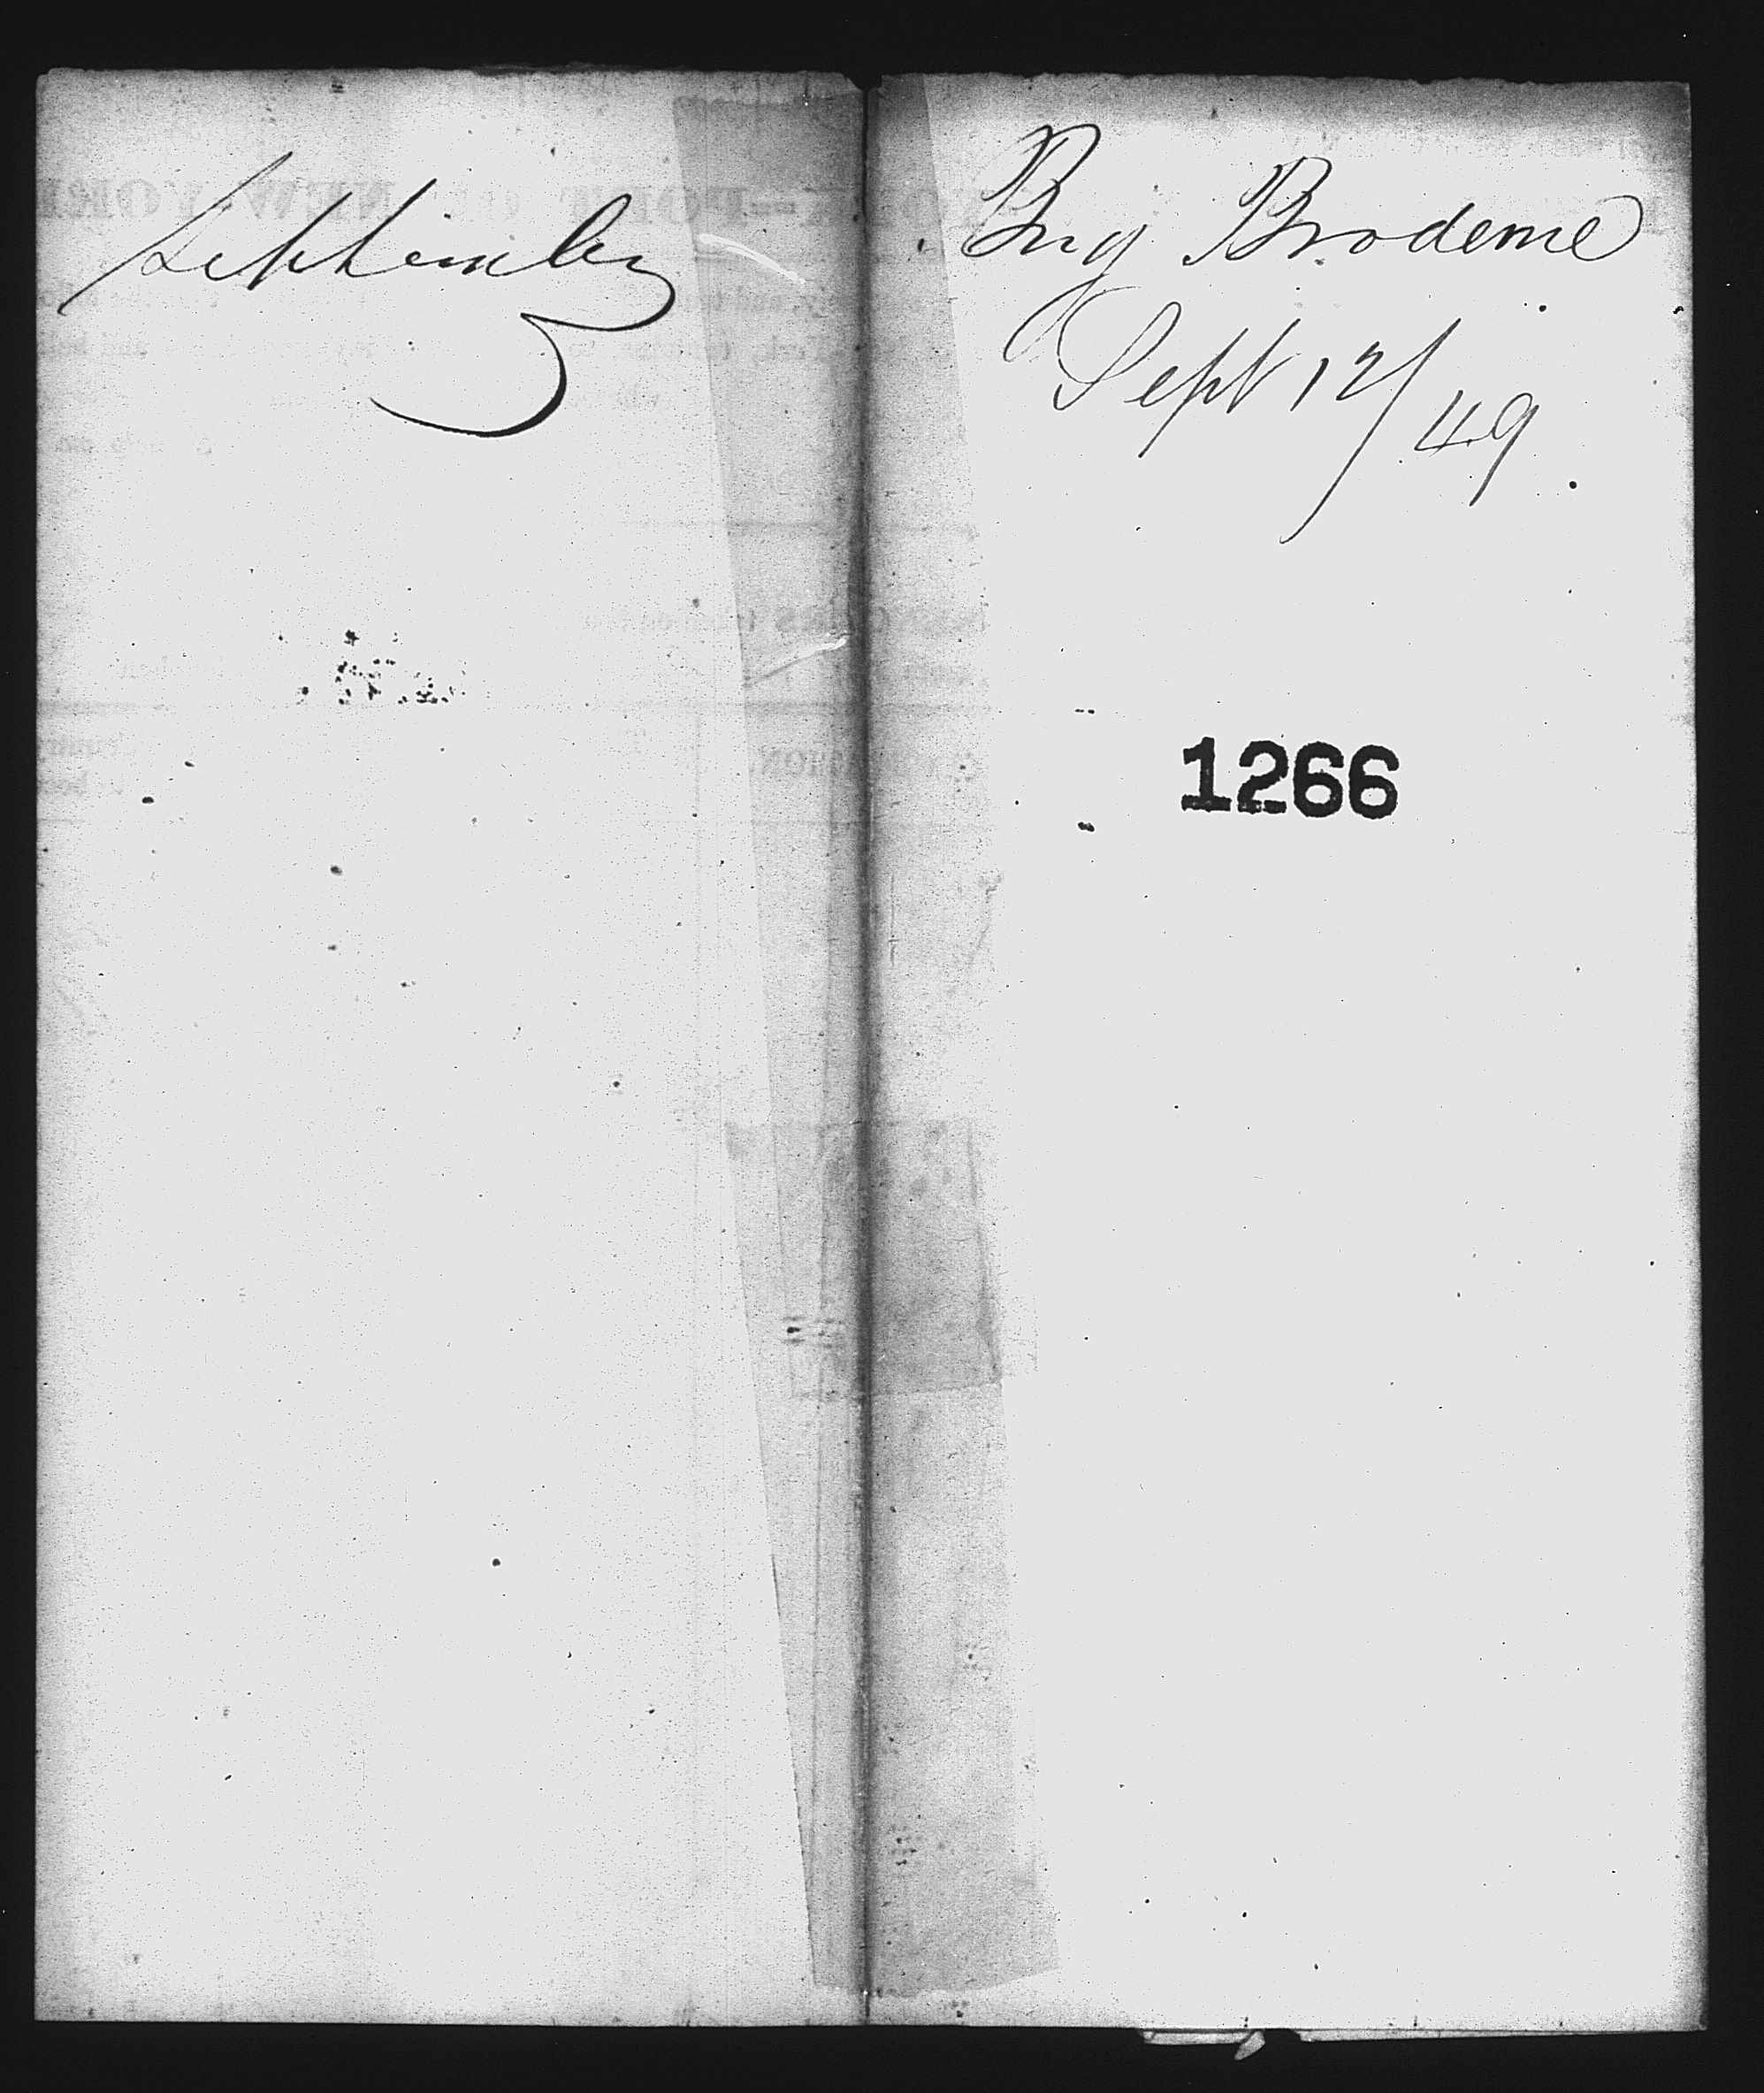 September
Brig Brodeme
Sept 12/49
1266